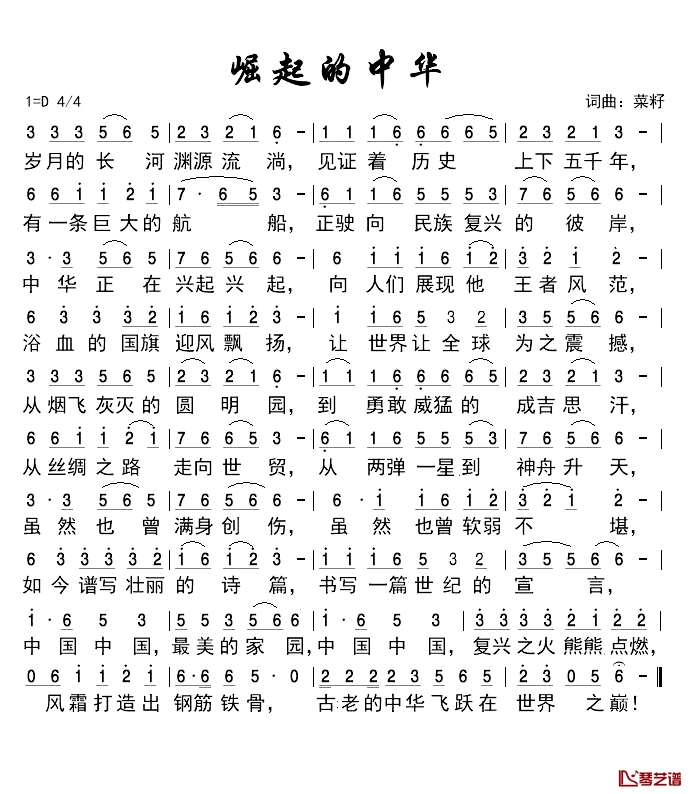 崛起的中华
1=D 4/4 词曲：菜籽
3 3 3 5 6 5 | 2 3 2 1 6 - | 1 1 1 6 6 6 6 5 | 2 3 2 1 3 - |
岁月的 长 河 渊源 流 淌， 见证着 历史 上下 五千年，
6 6 1 1 2 1 | 7 · 6 5 3 - | 6 1 1 6 5 5 5 3 | 7 6 5 6 5 - |
有一条巨大的 航 船， 正驶向 民族 复兴 的 彼 岸，
3 · 3 5 6 5 | 7 6 5 6 6 - | 6 · 1 1 1 6 1 2 | 3 2 1 2 - |
中 华 正 在 兴起 兴 起， 向 人们 展现他 王者 风 范，
6 · 3 3 3 2 | 1 6 1 2 3 - | 6 · 1 6 5 3 2 | 3 5 5 6 6 - |
浴 血的国旗 迎风 飘 扬， 让 世界让 全球 为之 震 撼，
3 3 3 5 6 5 | 2 3 2 1 6 - | 1 1 1 6 6 6 6 5 | 2 3 2 1 3 - |
从烟飞 灰灭 的 圆 明 园， 到 勇敢 威猛 的 成吉 思 汗，
6 6 1 1 2 1 | 7 6 5 5 3 - | 6 1 1 6 5 5 5 3 | 7 6 5 6 5 - |
从丝绸 之 路 走向 世 贸， 从 两弹 一星到 神舟 升 天，
3 · 3 5 6 5 | 7 6 5 6 6 - | 6 · 1 1 1 6 1 2 | 3 2 1 2 - |
虽 然 也 曾 满身 创 伤， 虽 然 也曾软弱 不 堪，
6 3 3 3 3 2 | 1 6 1 2 3 - | 6 6 1 6 5 3 2 | 3 5 5 6 6 - |
如 今 谱写 壮丽 的 诗 篇， 书写 一篇 世纪 的 宣 言，
1 · 6 5 3 | 5 5 5 3 5 6 6 | 1 · 6 5 3 | 3 3 3 3 2 1 2 2 |
中 国 中 国， 最美的 家 园， 中 国 中 国， 复兴 之火 熊熊 点燃，
0 6 1 1 2 1 | 6 · 6 6 5 3 · 0 | 2 2 2 2 3 5 5 5 | 2 3 0 5 6 - ‖
风霜打造出 钢筋 铁 骨， 古老的中华飞跃在 世界 之 巅！
琴艺谱